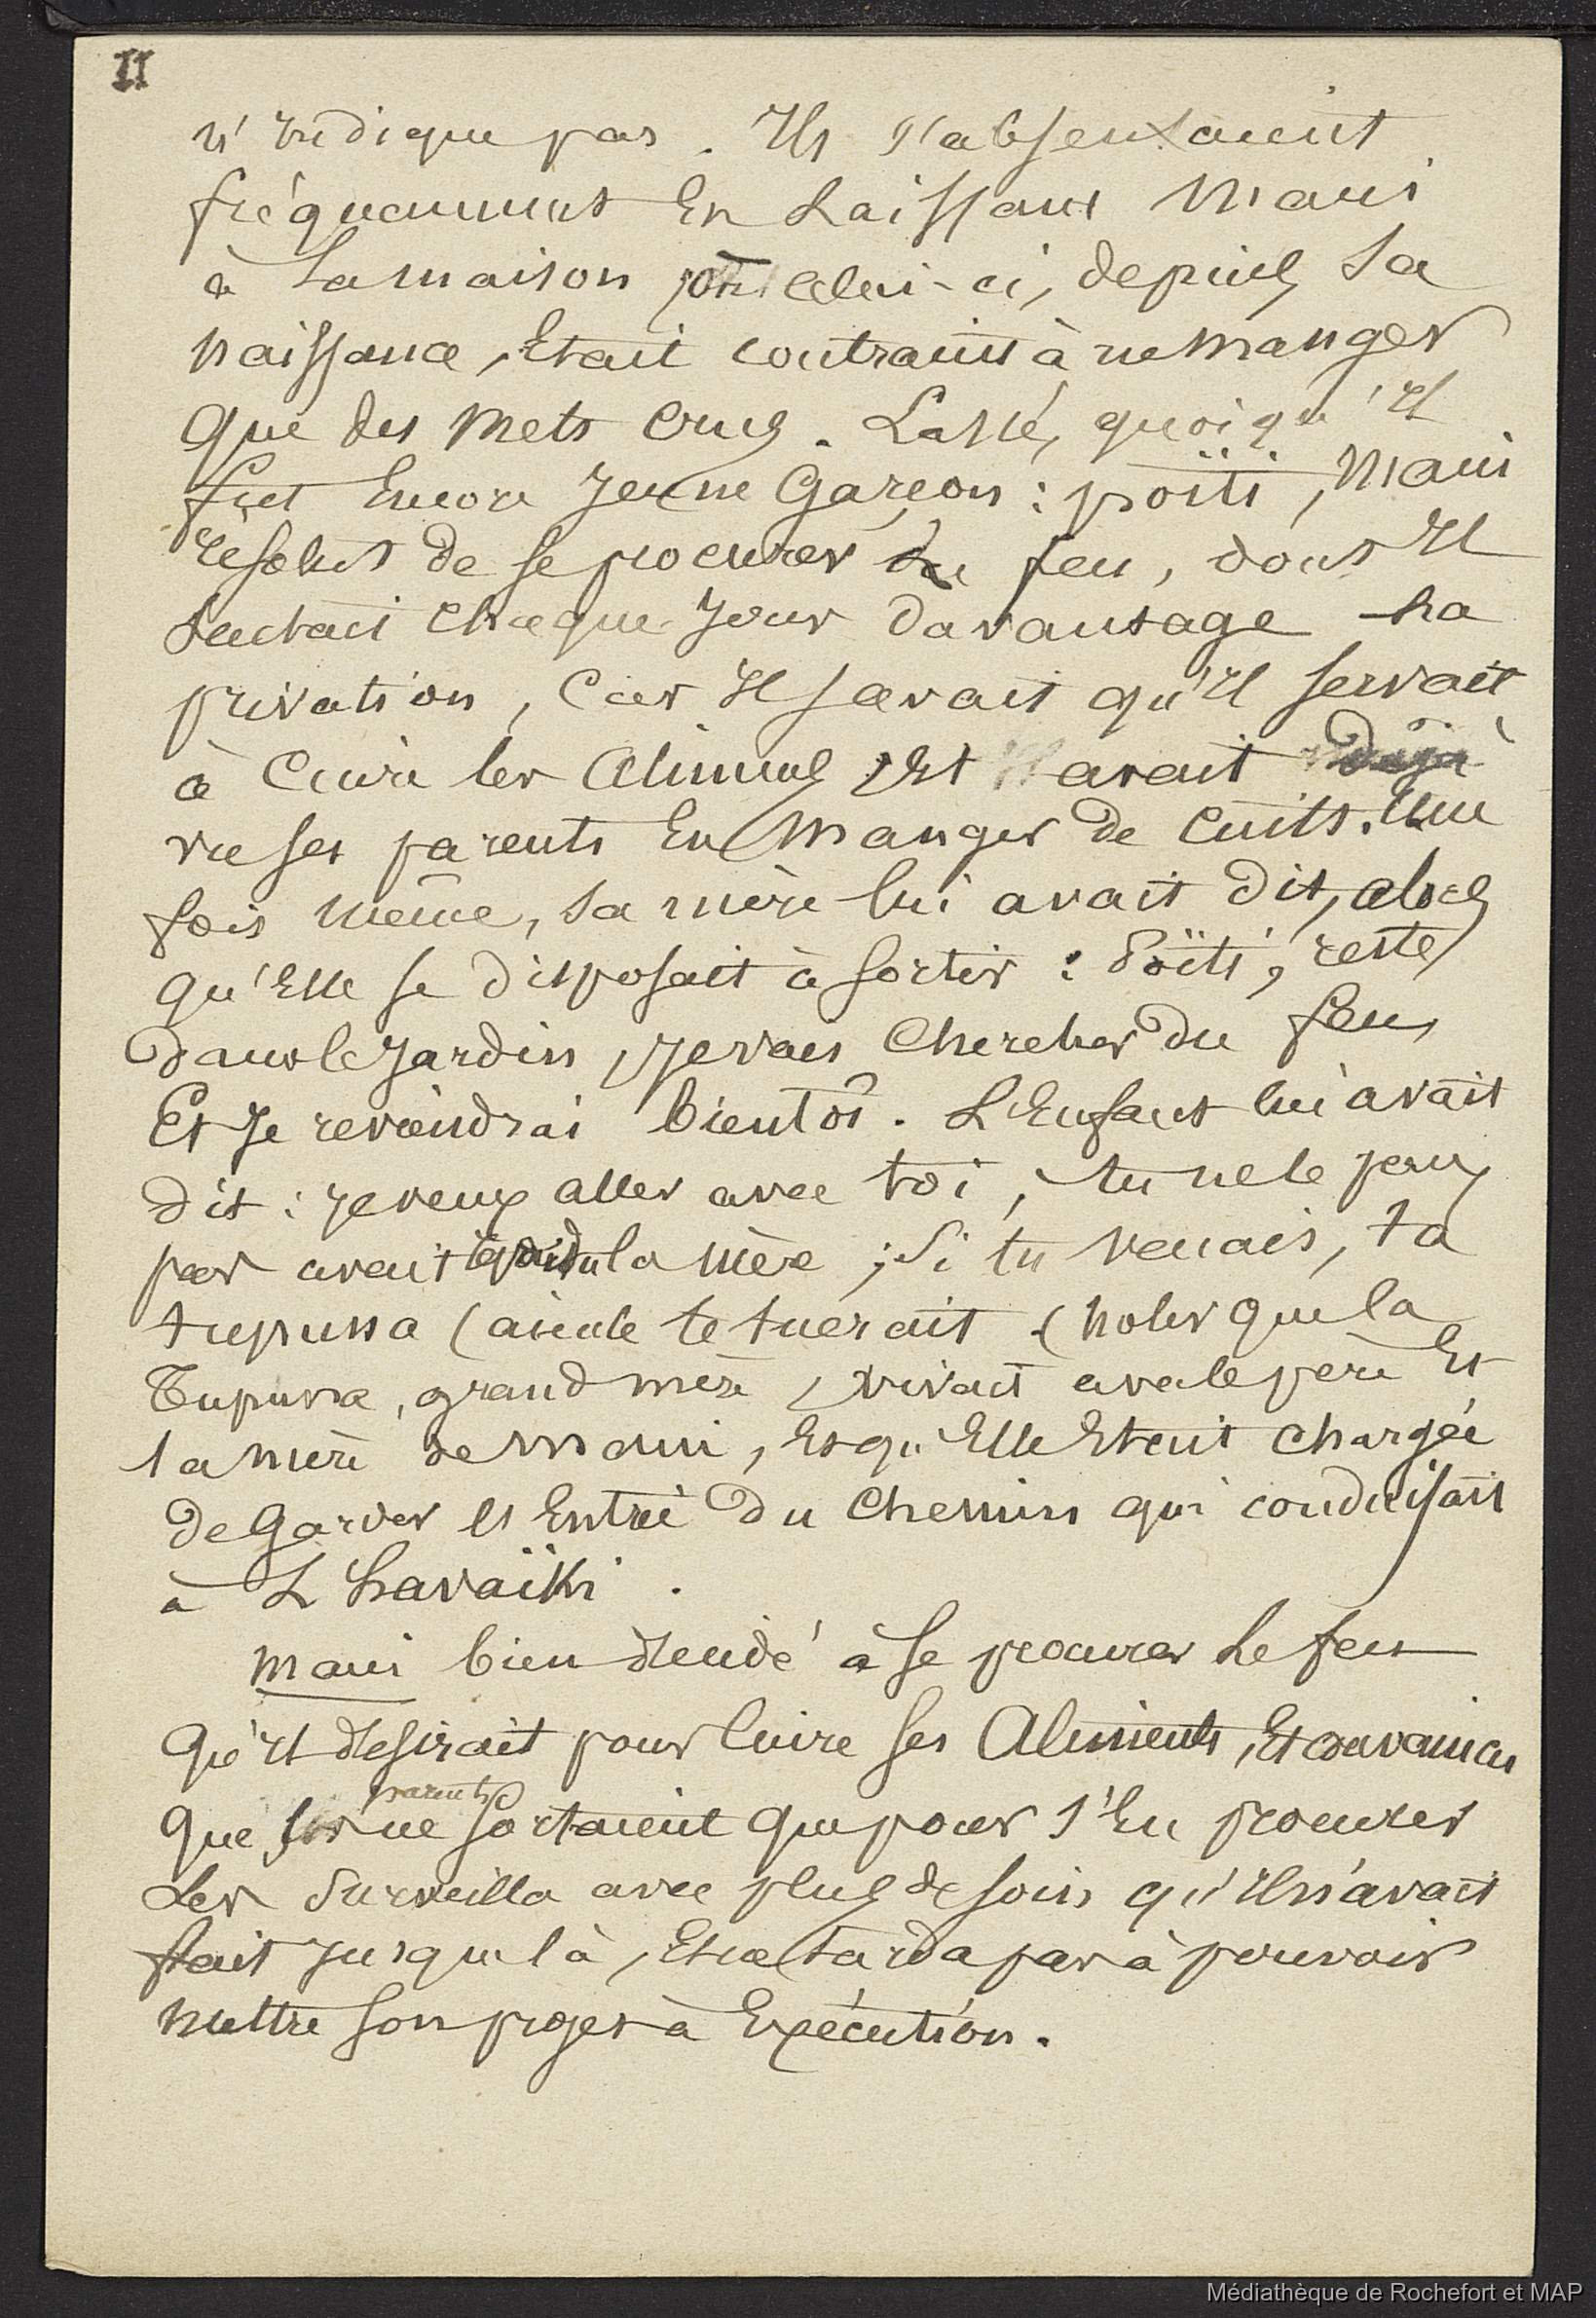 II
n'indique pas. Ils s'absentaient
fréquemment En Laissant Maui
à La maison où celui-ci, depuis sa
naissance, Etait contraint à ne manger
que des Mets Crus. Lassé, quoiqu'Il
fut Encore Jeune Garçon : poïti, Maui
résolut de se procurer du feu, dont Il
sentait Chaque Jour davantage La
privation, Car Il savait qu'Il servait
à Cuire les Aliments, Et avait Déjà
vu ses parents En Manger de Cuits. Une
fois même, sa mère lui avait Dit, alors
qu'Elle se Disposait à sortir : Poïti, reste
Dans le Jardin, Je vais Chercher Du feu,
Et Je reviendrai bientôt. L'Enfant lui avait
Dit : Je veux Aller avec toi, tu ne le peux
pas avait répondu la Mère ; Si tu venais, ta
tupuna (aïeule te tuerait (Notez que la
Tupuna, grand mère, vivait avec le père Et
la mère de Maui, Et qu'Elle Etait chargée
de Garder l'Entrée Du Chemin qui conduisait
à L'havaïki.
Maui bien décidé à se procurer Le feu
qu'Il désirait pour Cuire ses Aliments, Et convaincu
que ses parents ne sortaient que pour s'En procurer
Les Surveilla avec plus de soin qu'Il n'avait
fait Jusque là, Et ne tarda pas à pouvoir
mettre son projet à Exécution.
Médiathèque de Rochefort et MAP